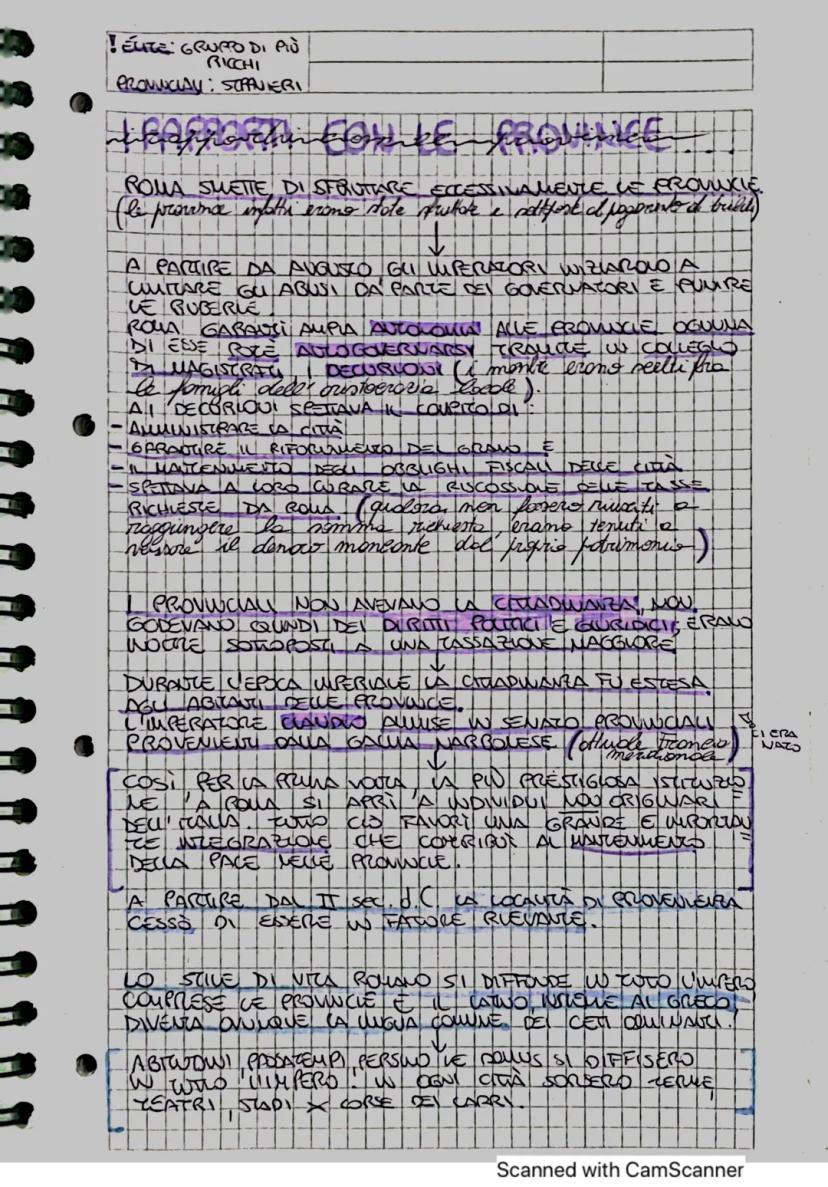 ! ÉLITE: GRUPPO DI PIÙ
RICCHI
PROVINCIALI: STRANIERI
I RAPPORTI CON LE PROVINCE
ROMA SMETTE DI SFRUTTARE ECCESSIVAMENTE LE PROVINCIE.
(le province infatti erano state sfruttate e sottoposte al pagamento di tributi)
↓
A PARTIRE DA AUGUSTO GLI IMPERATORI INIZIAROLO A
LIMITARE GLI ABUSI DA PARTE DEI GOVERNATORI E PUNIRE
LE RUBERIE.
ROMA GARANTÌ AMPIA AUTONOMIA ALLE PROVINCIE, OGNUNA
DI ESSE POTÈ AUTOGOVERNARSI TRAMITE UN COLLEGIO
DI MAGISTRATI, I DECURIONI (i membri erano scelti fra
le famigli dell'aristocrazia locale).
AI DECURIONI SPETTAVA IL COMPITO DI:
- AMMINISTRARE LA CITTÀ
- GARANTIRE IL RIFORNIMENTO DEL GRANO E
- IL MANTENIMENTO DEGLI OBBLIGHI FISCALI DELLE CITTÀ
- SPETTAVA A LORO CURARE LA RISCOSSIONE DELLE TASSE
RICHIESTE DA ROMA. (qualora non fossero riusciti a
raggiungere la somma richiesta, erano tenuti a
versare il denaro mancante dal proprio patrimonio)
I PROVINCIALI NON AVEVANO LA CITTADINANZA, NON
GODEVANO QUINDI DEI DIRITTI POLITICI E GIURIDICI, ERANO
INOLTRE SOTTOPOSTI A UNA TASSAZIONE MAGGIORE
↓
DURANTE L'EPOCA IMPERIALE LA CITTADINANZA FU ESTESA
AGLI ABITANTI DELLE PROVINCE.
L'IMPERATORE CLAUDIO AMMISE IN SENATO PROVINCIALI
PROVENIENTI DALLA GALLIA NARBONESE (attuale Francia meridionale)
LÌ ERA
NATO
↓
COSÌ, PER LA PRIMA VOLTA, LA PIÙ PRESTIGIOSA ISTITUZIO
NE A ROMA SI APRÌ A INDIVIDUI NON ORIGINARI =
DELL'ITALIA. TUTTO CIÒ FAVORÌ UNA GRANDE E IMPORTAN
TE INTEGRAZIONE CHE CONTRIBUÌ AL MANTENIMENTO =
DELLA PACE NELLE PROVINCIE.
A PARTIRE DAL II sec. d.C LA LOCALITÀ DI PROVENIENZA
CESSÒ DI ESSERE UN FATTORE RILEVANTE.
LO STILE DI VITA ROMANO SI DIFFONDE IN TUTO L'IMPERO,
COMPRESE LE PROVINCIE E IL LATINO, INSIEME AL GRECO,
DIVENTA OVUNQUE LA LINGUA COMUNE DEI CETI DOMINANTI.
↓
ABITUDINI, PASSATEMPI, PERSINO LE DOMUS SI DIFFISERO
IN TUTTO L'IMPERO. IN OGNI CITTÀ SORSERO TERME,
TEATRI, STADI X CORSE DEI CARRI.
Scanned with CamScanner